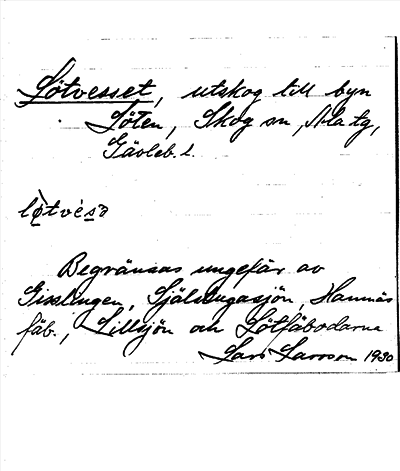 Lötvesset, utskog till byn
Löten, Skog sn, Ala tg,
Gävleb. l.
Begränsas ungefär av
Gisslingen, Själstugasjön, Hamnäs
fäb., Lillsjön och Lötfäbodarna
Lars Larsson 1930